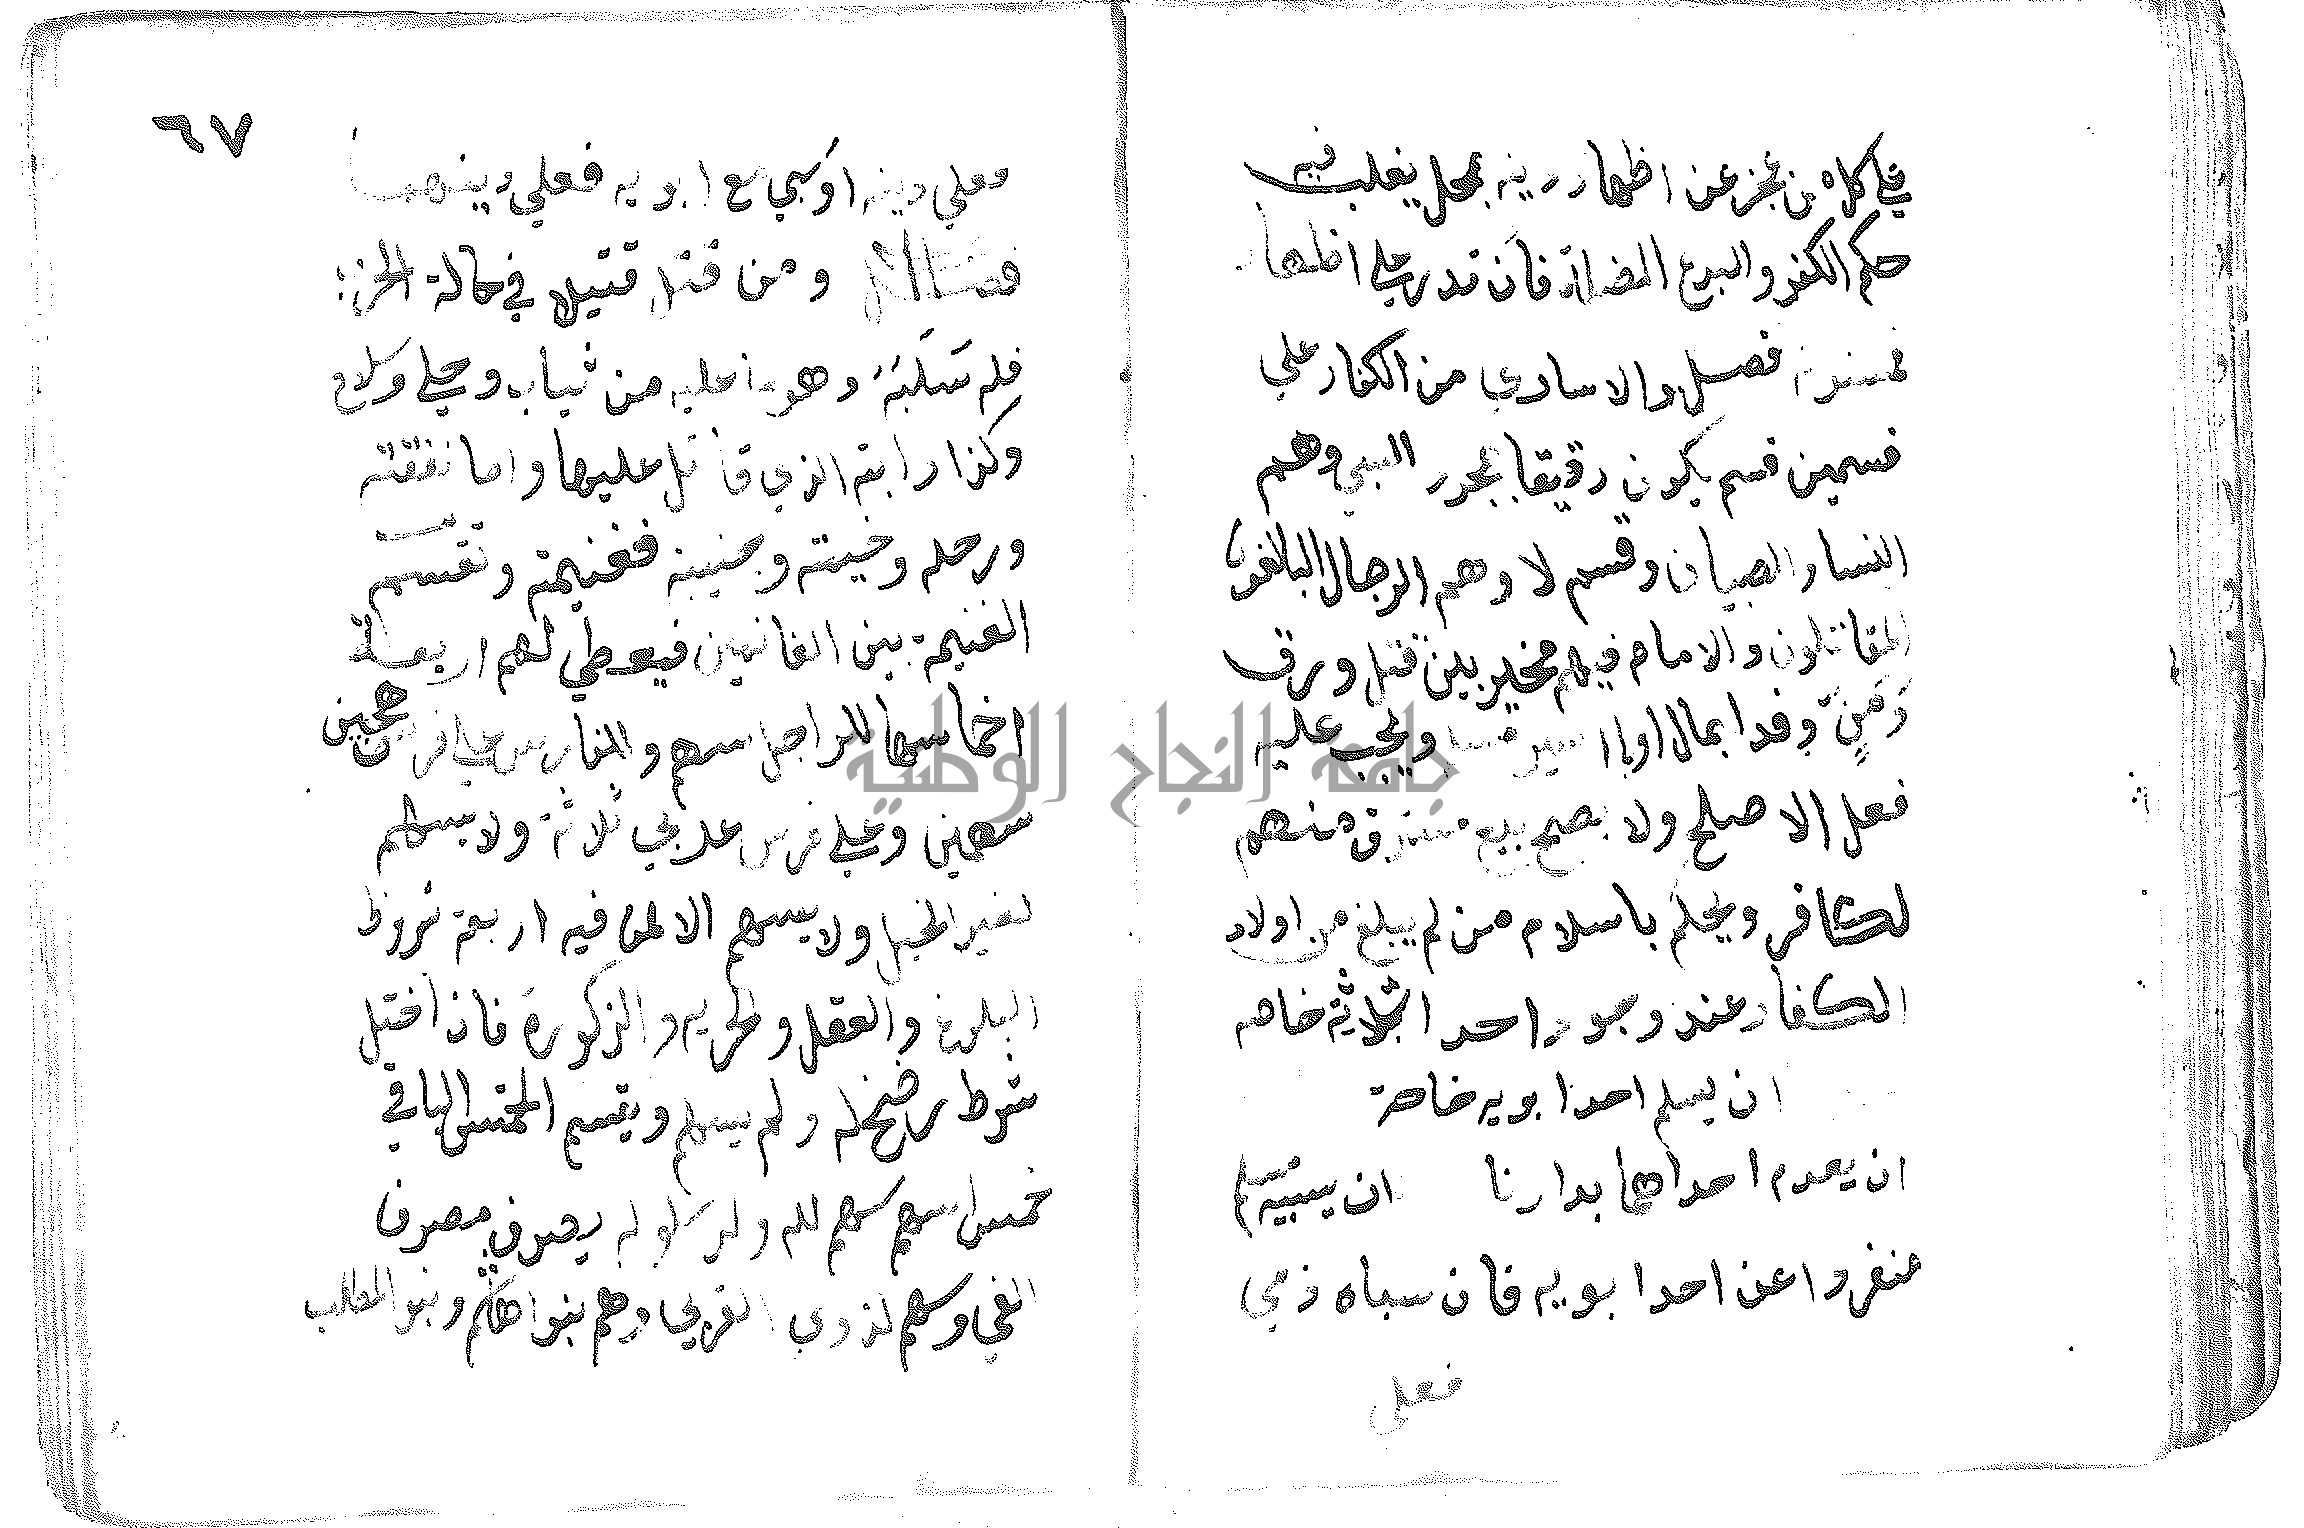 علي كل من عجز عن اظهار دينه بمحل يغلب فيه
حكم الكفر والبدع المضلة فان قدر علي اظهار
فمسنونة فصل والاسارى من الكفار علي
قسمين قسم يكون رقيقا بمجرد السبي وهم
النسا والصبيان وقسم لا وهم الرجال البالغون
المقاتلون والامام فيهم مخير بين قتل ورق
ومن وفدا بمال او باسير مسلم ويجب عليه
فعل الاصلح ولا يصح بيع مسترق منهم
لكافر ويحكم باسلام من لم يبلغ من اولاد
الكفار عند وجود احد ثلاثة خاصه
ان يسلم احد ابويه خاصة
ان يعدم احداهما بدارنا ان يسبيه مسلم
منفردا عن احد ابويه فان سباه ذمي
فعلي
٦٧
فعلي دينه او سبي مع ابويه فعلي دينهما
فصل ومن قتل قتيلا في حالة الحرب
فله سلبه وهو ما عليه من ثياب وحلي وسلاح
وكذا دابته الذي قاتل عليها واما نفقته
ورحله وخيمته وجنيبه فغنيمة وتقسم
الغنيمة بين الغانمين فيعطي لهم اربعة
اخماسها للراجل سهم وللفارس علي فرس هجين
سهمين وعلي فرس عربي ثلاثة ولا يسهم
لغير الخيل ولا يسهم الا لمن فيه اربعة شروط
البلوغ والعقل والحريه والذكورة فان اختل
شرط رضخ له ولم يسهم ويقسم الخمس الباقي
خمس اسهم سهم لله ولرسوله يصرف مصرف
الفي وسهم لذوي القربي وهم بنوا هاشم وبنو المطلب
جامعة النجاح الوطنية